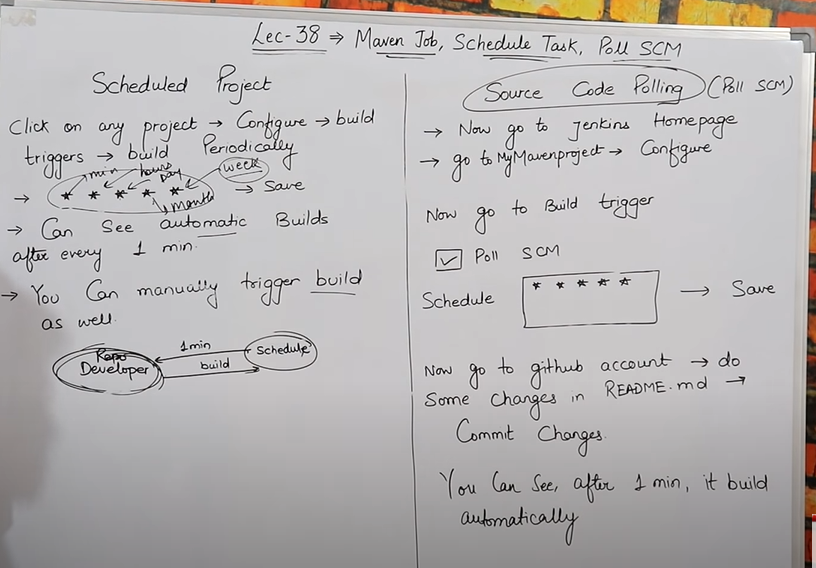 Lec-38 ⇒ Maven Job, Schedule Task, Poll SCM
Scheduled Project
Click on any project → Configure → build
triggers → build Periodically
min hours day week
→ * * * * * → Save
month
→ Can See automatic Builds
after every 1 min.
→ You Can manually trigger build
as well.
1min
Schedule
Developer
build
Source Code Polling (Poll SCM)
→ Now go to Jenkins Homepage
→ go to MyMavenproject → Configure
Now go to Build trigger
☑ Poll SCM
Schedule * * * * * → Save
Now go to github account → do
Some changes in README.md →
Commit Changes.
You Can See, after 1 min, it build
automatically